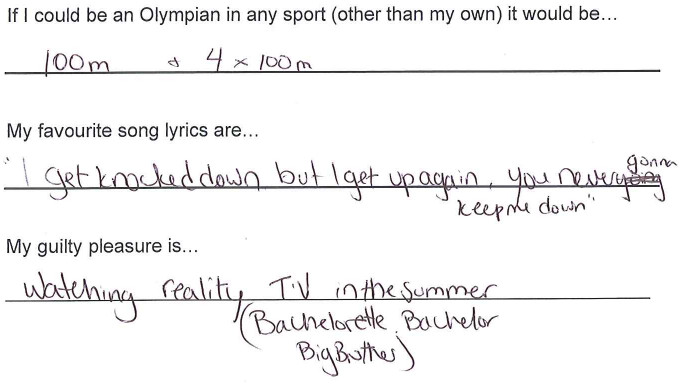 If I could be an Olympian in any sport (other than my own) it would be...
100m & 4 x 100m
My favourite song lyrics are...
"I get knocked down but I get up again, you never gonna
keep me down"
My guilty pleasure is...
Watching reality TV in the summer
(Bachelorette, Bachelor
Big Brother)